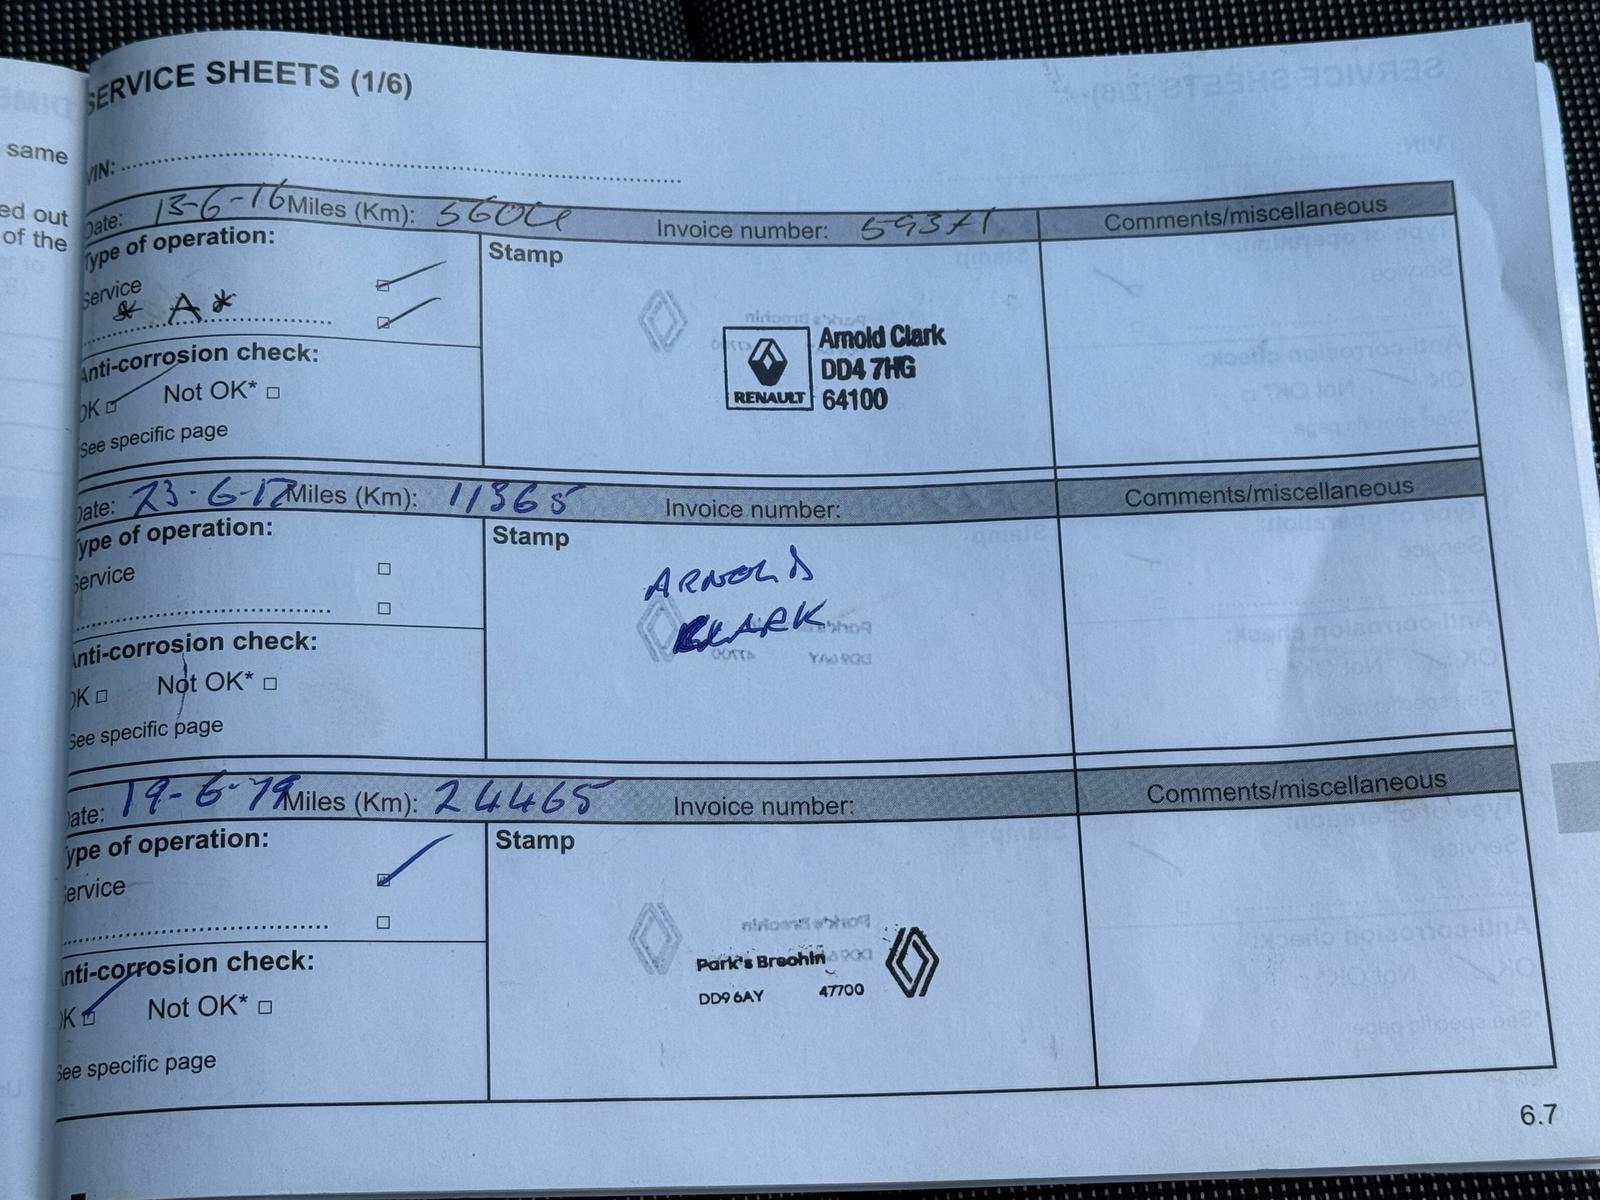 same
ed out
of the
SERVICE SHEETS (1/6)
VIN:
Date: 13-6-16 Miles (Km): Invoice number: Comments/miscellaneous
Type of operation:
Service
* A *
Anti-corrosion check:
OK Not OK*
See specific page
Stamp
RENAULT
Arnold Clark
DD4 7HG
64100
Date: 23-6-17 Miles (Km): 11365 Invoice number: Comments/miscellaneous
Type of operation:
Service
Anti-corrosion check:
OK Not OK*
See specific page
Stamp
ARNOLD
CLARK
Date: 19-6-19 Miles (Km): 24465 Invoice number: Comments/miscellaneous
Type of operation:
Service
Anti-corrosion check:
OK Not OK*
See specific page
Stamp
Park's Brechin
DD9 6AY 47700
6.7